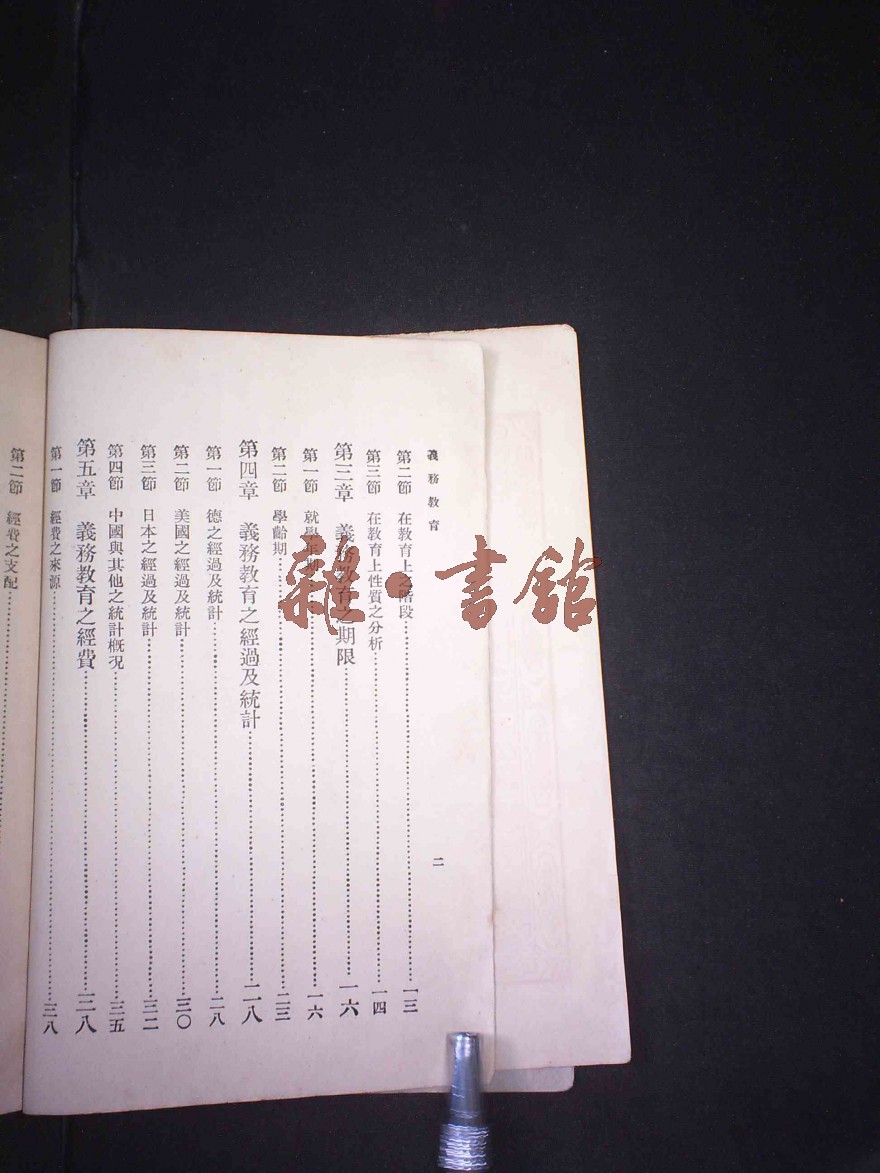 義務教育
二
第二節 在教育上之階段 一三
第三節 在教育上性質之分析 一四
第三章 義務教育之期限 一六
第一節 就學年期 一六
第二節 學齡期 二三
第四章 義務教育之經過及統計 二八
第一節 德之經過及統計 二八
第二節 美國之經過及統計 三〇
第三節 日本之經過及統計 三二
第四節 中國與其他之統計概况 三五
第五章 義務教育之經費 三八
第一節 經費之來源 三八
第二節 經費之支配
雜·書館